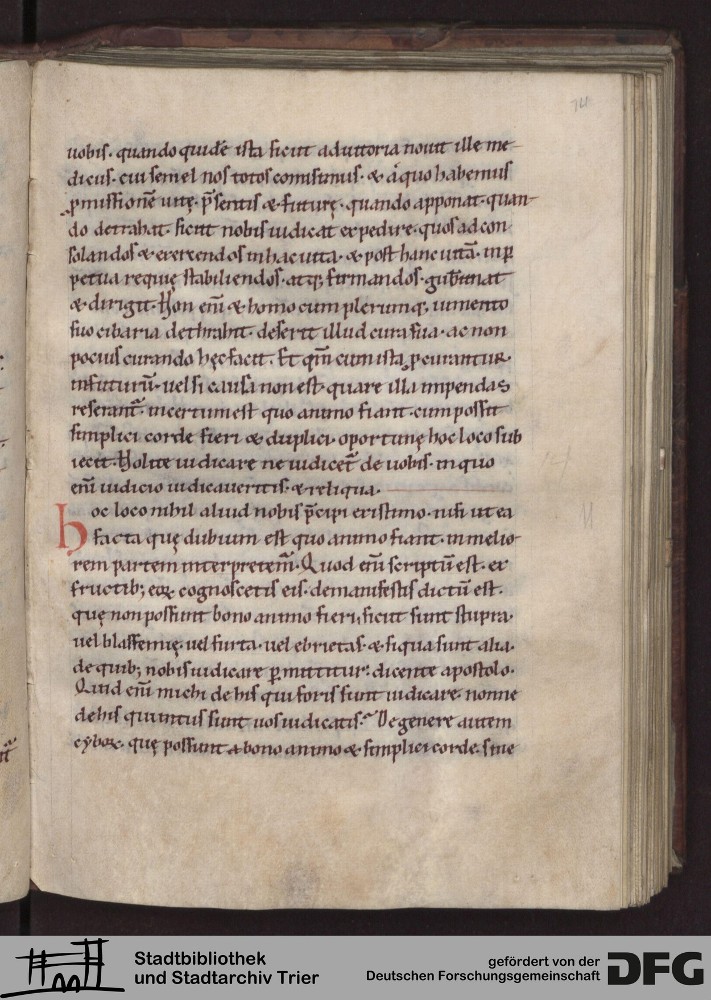 74
uobis. quando quidē ista sicut adiutoria nouit ille me-
dicus. cui semel nos totos comisimus. & a quo habemus
ꝓmissionē uitę. p̄sentis & futurę. quando apponat. quan-
do detrahat. sicut nobis iudicat expedire. quos ad con
solandos & exercendos in hac uita. & post hanc uitā. in ꝑ
petua requie stabiliendos. atq; firmandos. gub̄nat
& dirigit. Non eni̅ & homo cum plerumq; iumento
suo cibaria dethrahit. deserit illud cura sua. ac non
pocius curando hęc facit. Et qm̄ cum ista ꝓcurantur
in futurū. uel si causa non est. quare illa impendas
reserant̄. incertum est quo animo fiant. cum possit
simplici corde fieri & duplici. oportunę hoc loco sub
iecit. Nolite iudicare ne iudicet̄ de uobis. in quo
eni̅ iudicio iudicaueritis. & reliqua.
hoc loco nihil aliud nobis p̄cipi existimo. nisi ut ea
facta quę dubium est quo animo fiant. in melio-
rem partem interpretem̄. Quod eni̅ scriptū est. ex
fructib; eoꝝ cognoscetis eis. de manifestis dictū est.
quę non possunt bono animo fieri. sicut sunt stupra.
uel blasfemię. uel furta. uel ebrietas. & siqua sunt alia.
de quib; nobis iudicare ꝑmittitur. dicente apostolo.
Quid eni̅ michi de his qui foris sunt iudicare. nonne
de his qui intus sunt uos iudicatis. De genere autem
cyboꝝ. quę possunt & bono animo & simplici corde. sine
Stadtbibliothek
und Stadtarchiv Trier
gefördert von der
Deutschen Forschungsgemeinschaft
DFG